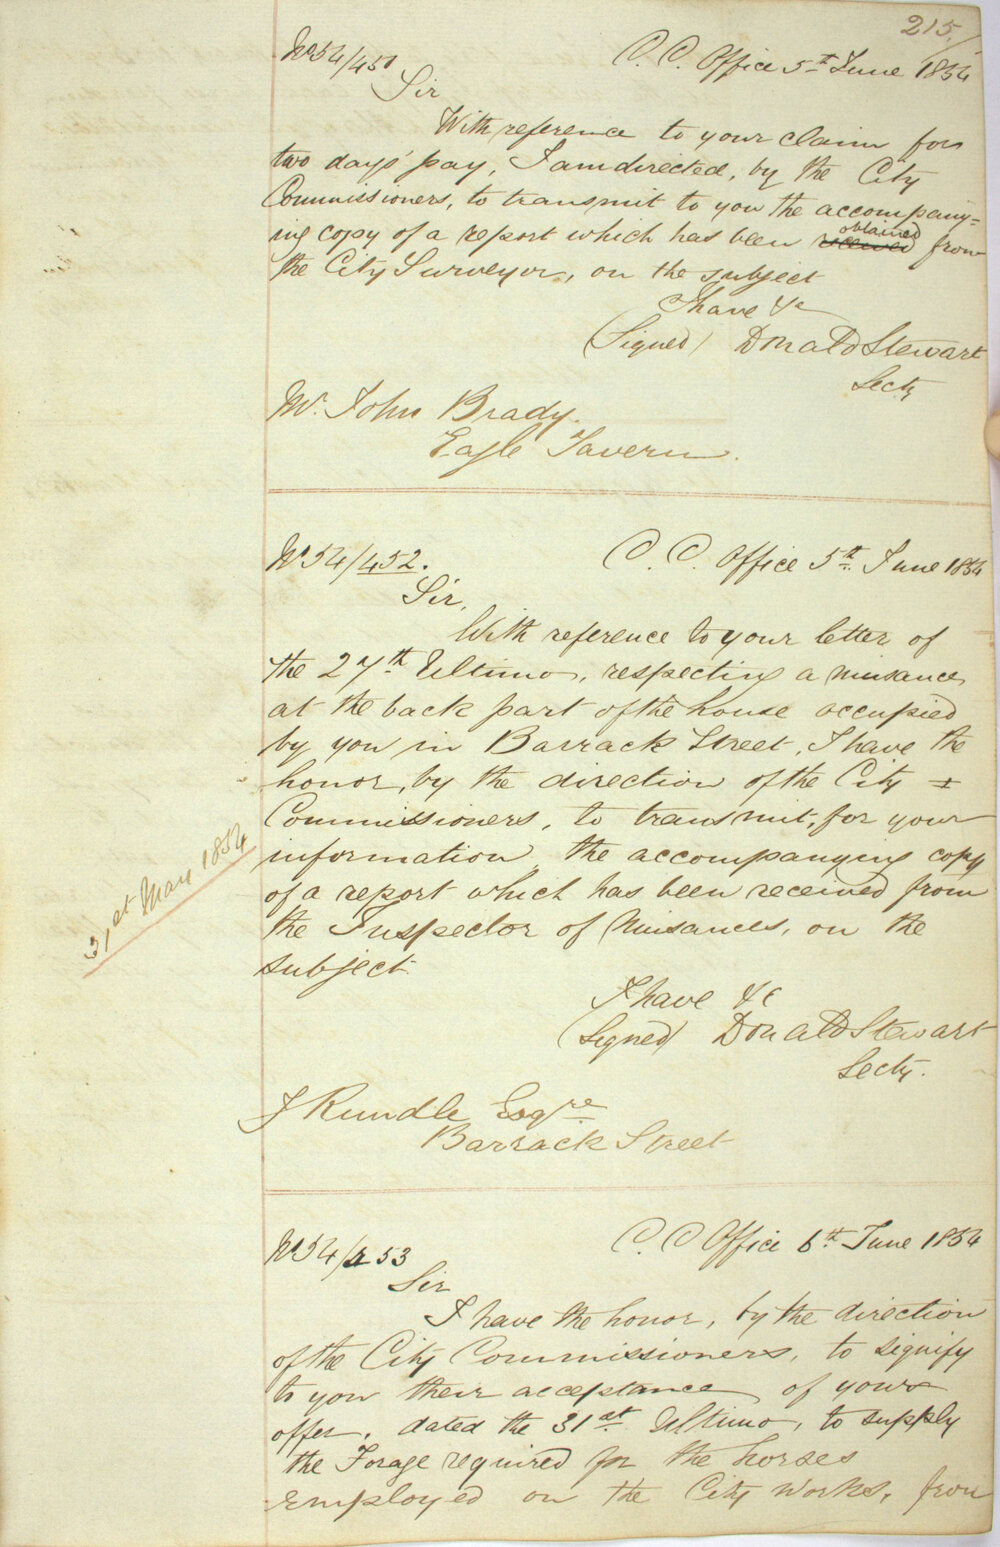 215.
No 54/451
C. C. Office 5th June 1854
Sir
With reference to your claim for
two days' pay, I am directed, by the City
Commissioners, to transmit to you the accompany=
ing copy of a report which has been received obtained from
the City Surveyor, on the subject
I have &c
(Signed) Donald Stewart
Secty
Mr. John Brady.
Eagle Tavern.
No 54/452.
C. C. Office 5th. June 1854
Sir,
With reference to your letter of
the 27th Ultimo, respecting a nuisance
at the back part of the house occupied
by you in Barrack Street, I have the
honor, by the direction of the City
Commissioners, to transmit, for your
information, the accompanying copy
of a report which has been received from
31st May 1854
the Inspector of Nuisances, on the
subject.
I have &c
(Signed) Donald Stewart
Secty.
J Rundle Esqre
Barrack Street
No 54/453
C. C. Office 6th. June 1854
Sir
I have the honor, by the direction
of the City Commissioners, to signify
to you their acceptance of your
offer, dated the 31st. Ultimo, to supply
the Forage required for the horses
employed on the City Works, from